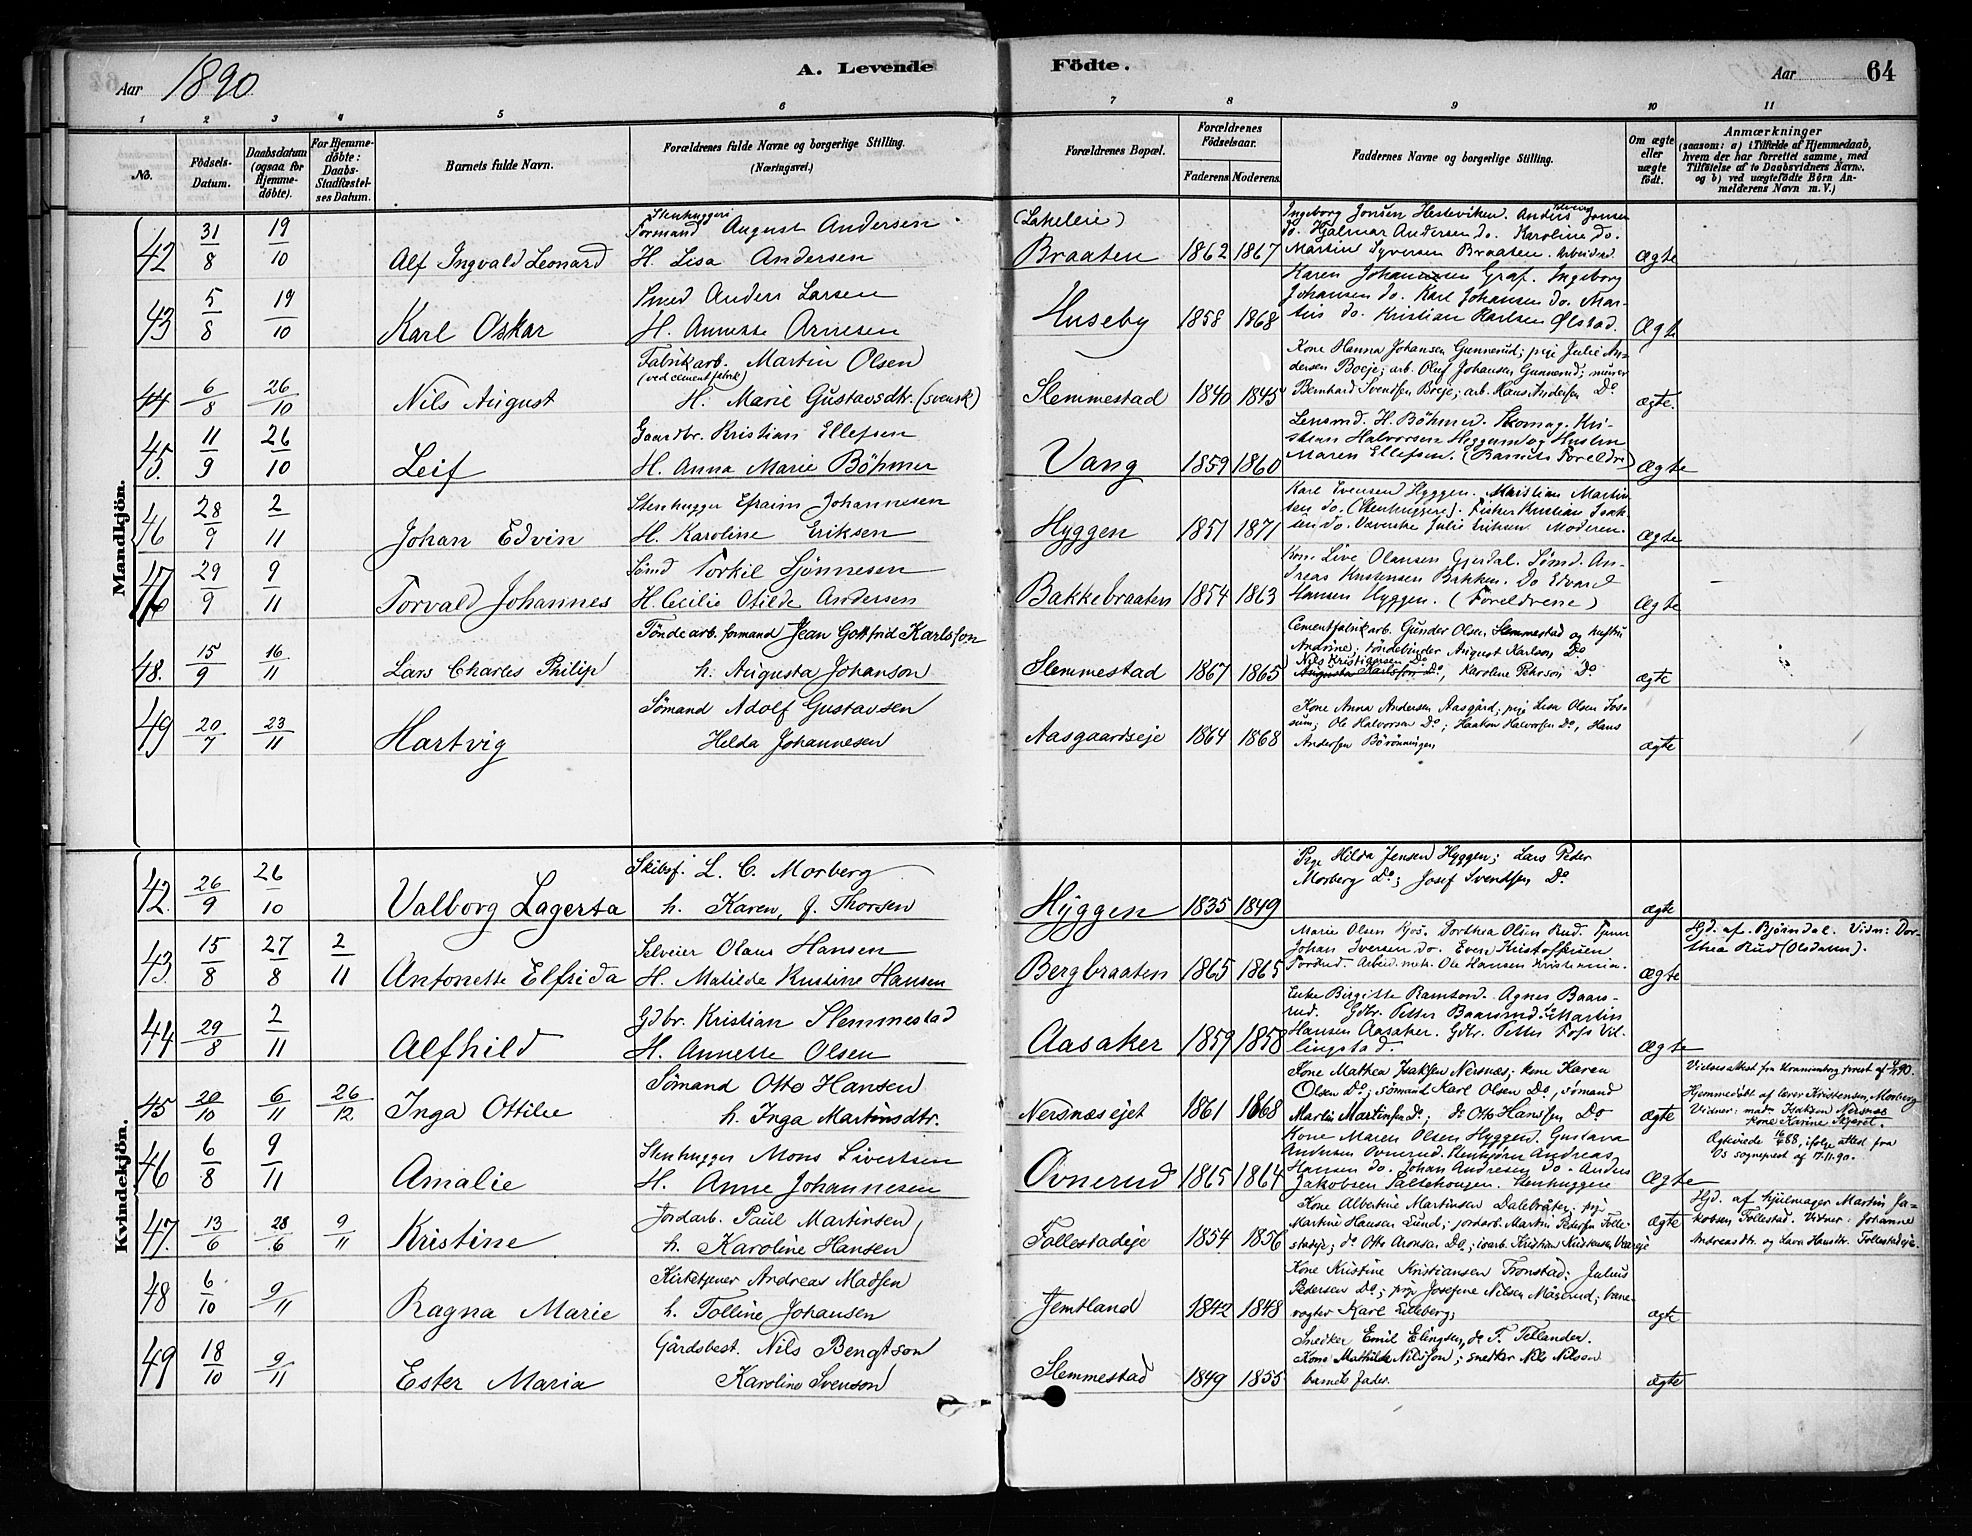 Aar 1890
A. Levende
Födte.
Aar
64
1 2 3 4 5 6 7 8 9 10 11
No.
Födsels-Datum.
Daabsdatum (ogsaa for Hjemmedöbte).
For Hjemmedöbte: Daabs-Stadfæstelses Datum.
Barnets fulde Navn.
Forældrenes fulde Navne og borgerlige Stilling. (Næringsvei.)
Forældrenes Bopæl.
Forældrenes Födselsaar.
Faderens Moderens
Faddernes Navne og borgerlige Stilling.
Om ægte eller uægte födt.
Anmærkninger
(saasom: a) i Tilfælde af Hjemmedaab,
hvem der har forrettet samme, med
Tilföielse af to Daabsvidners Navne,
og b) ved uægtefödte Börn Anmelderens Navn m. V.)
Mandkjön.
42 31/8 19/10 Alf Ingvald Leonard
Stenhuggeri
Formand August Andersen
H. Lisa Andersen
(Lakeleie)
Braaten 1862 1867
Ingeborg Jonsen Hesteviken. Anders Jonsen
do. Hjalmar Andersen do. Karoline do.
Martin Syversen Braaten. Arbeidsmd.
Ægte
43 5/8 19/10 Karl Oskar
Smed Anders Larsen
H. Annette Arnesen
Huseby 1858 1868
Karen Johannesen Graf. Ingeborg
Johansen do. Karl Johansen do. Martius do. Kristian Karlsen Ølstad.
Ægte
44 6/8 26/10 Nils August
Fabrikarb. Martin Olsen
(ved cementfabrik)
H. Marie Gustavsdtr. (svensk)
Slemmestad 1840 1845
Kone Hanna Johansen Gunnerud; pige Julie Andersen Boeje; arb. Oluf Johansen Gunnerud; murer
Bernhard Svendsen Boeje; arb. Hans Andersen Do
ægte.
45. 11/9 26/10 Leif
Gaardbr. Kristian Ellefsen
H. Anna Marie Böhmer
Vang 1859 1860
Lensmd. H. Böhmer. Skomag. Kristian Halvorsen Heggum og Hustru
Maren Ellefsen. (Barnets Foreldre)
Ægte
46 28/9 2/11 Johan Edvin
Stenhugger Efraim Johannesen
H. Karoline Eriksen
Hyggen 1851 1871
Karl Evensen Hyggen. Kristian Martinsen do. (Stenhuggere). Fisker Kristian Isaksen do. Væverske Julie Eriksen. Moderen.
Ægte
47 29/9 9/11 Torvald Johannes
Sømd Torkil Tjönnesen
H. Cecilie Otilde Andersen
Bakkebraaten 1854 1863
Kone Live Olausen Gjerdal. Sömd. Andreas Kristensen Bakken. Do Edvard
Hansen Hyggen. (Foreldrene)
Ægte
48. 15/9 16/11 Lars Charles Philip
Töndearb. formand Jean Gottfrid Karlsson
h. Augusta Johanson
Slemmestad 1867 1865
Cementfabrikarb. Gunder Olsen Slemmestad og hustru
Andrine; töndebinder August Karlson Do
Nils Kristiansen Do
Augusta Karlsson Do, Karoline Pehrson Do
ægte
49 20/7 23/11 Hartvig
Sømand Adolf Gustavsen
Hilda Johannesen
Aasgaardseje 1864 1868
Kone Anna Andersen Aasgård; pige Lisa Olsen Fossum; Ole Halvorsen Do; Haakon Halvorsen Do, Hans
Andersen Börönningen,
ægte
Kvindekjön.
42. 26/9 26/10 Valborg Lagerta
Skibsf. L. C. Morberg
h. Karen, f. Thorsen
Hyggen 1835 1849
Pige Hilda Jensen Hyggen; Lars Peder
Morberg Do; Josef Svendsen Do.
ægte
43. 15/8 27/8 2/11 Antonette Elfrida
Selveier Olaus Hansen
H. Matilde Kristine Hansen
Bergbraaten 1865 1865
Marie Olsen Kjos. Dorthea Olsen Rud. Tjener
Johan Iversen do. Even Kristoffersen
Morkud. Arbeid.md. Ole Hansen Kristiania.
Ægte
Hjd. af Bjørndal. Vidn: Dorthea Rud (Olsdatter).
44 29/8 2/11 Alfhild
Gdbr. Kristian Slemmestad
H. Annette Olsen
Aasaker 1859 1858
Enke Birgitte Ramton. Agnes Baarsrud. Gdbr. Petter Baarsrud. Martin
Hansen Aasaker. Gdbr. Petter Foss Villingstad.
Ægte
45 20/10 6/11 26/12 Inga Ottilie
Sømand Otto Hansen
h. Inga Martinsdtr.
Nersnæsejet 1861 1868
Kone Mathea Isaksen Nersnæs; kone Karen
Olsen Do; sömand Karl Olsen Do, sömand
Martin Martinsen Do; do Otto Hanssen Do
ægte
Vielsesattest fra Uranienborg prest af 90.
Hjemmedöbt af lærer Kristensen, Morberg
Vidner: mad. Isaksen Nersnæs
kone Karine Skjæret.
46 6/8 9/11 Amalie
Stenhugger Mons Sivertsen
H. Anne Johannesen
Ovnerud 1865 1864
Kone Maren Olsen Hyggen. Gustava
Andersen Ovnerud. Stenkjörer Andreas
Hansen do. Johan Andresen do. Anders
Jakobsen Saltekongen. Stenhuggere
Ægte
Ægteviede 88, ifølge attest fra
Os sogneprest af 17.11.90.
47. 13/6 28/6 9/11 Kristine
Jordarb. Paul Martinsen
h. Karoline Hansen
Follestadeje 1854 1856
Kone Albertine Martinsen Dalebråten; pige
Martine Hansen Lund; jordarb. Martin Pedersen Follestadeje; do Otto Aronsen Do; ioarb. Kristian Kristensen Veareje
ægte
Hjd. af hjulmager Martin Jakobsen Follestad. Vidner: Johanne
Andreasdtr. og Lava Hansdtr. Follestadeje.
48 6/10 9/11 Ragna Marie
Kirketjener Andreas Madsen
h. Tolline Johansen
Jemtland 1842 1848
Kone Kristine Kristiansen Tronstad; Julius
Pedersen Do; pige Josefine Nilsen Måsrud; banevogter Karl Elleberg;
ægte
49 18/10 9/11 Ester Maria
Gårdsbest. Nils Bengtson
Karoline Svenson
Slemmestad 1849 1855
Snedker Emil Elingsen, do F. Tellander.
Kone Mathilde Nilsson; snedker Nils Nilsen
barnets fader.
ægte